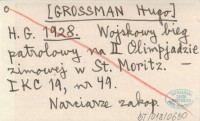 [GROSSMAN Hugo]
H.G. 1928. Wojskowy bieg
patrolowy na II Olimpjadzie
zimowej w St. Moritz. –
IKC 19, nr 49.
Narciarze zakop.